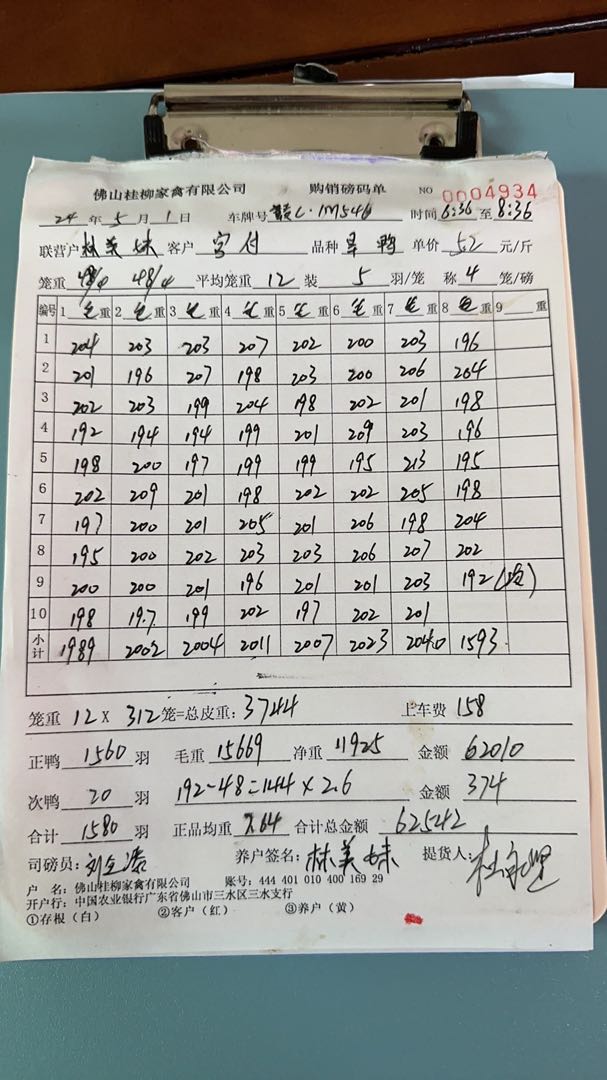 佛山桂柳家禽有限公司 购销磅码单 NO 0004934
24 年 5 月 1 日 车牌号 赣C·1M546 时间 6:36 至 8:36
联营户 林美妹 客户 品种 鸭 单价 5.2 元/斤
笼重 48/4 48/4 平均笼重 12 装 5 羽/笼 称 4 笼/磅
编号 1 毛 重 2 毛 重 3 毛 重 4 毛 重 5 毛 重 6 毛 重 7 毛 重 8 毛 重 9 重
1 204 203 203 207 202 200 203 196
2 201 196 207 198 203 200 206 204
3 202 203 199 204 198 202 201 198
4 192 194 194 199 201 209 203 196
5 198 200 197 199 199 195 213 195
6 202 209 201 198 202 202 205 198
7 197 200 201 205 201 206 198 204
8 195 200 202 203 203 206 207 202
9 200 200 201 196 201 201 203 192
10 198 197 199 202 197 202 201
小计 1989 2002 2004 2011 2007 2023 2040 1593
笼重 12 X 312 笼=总皮重: 3744 上车费 158
正鸭 1560 羽 毛重 15669 净重 11925 金额 62010
次鸭 20 羽 192-48=144×2.6 金额 374
合计 1580 羽 正品均重 7.64 合计总金额 62542
司磅员: 养户签名: 林美妹 提货人:
户 名: 佛山桂柳家禽有限公司 账号: 444 401 010 400 169 29
开户行: 中国农业银行广东省佛山市三水区三水支行
①存根（白） ②客户（红） ③养户（黄）